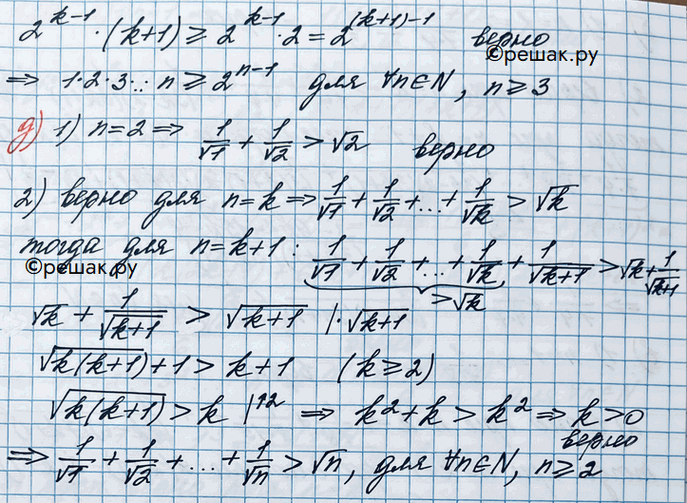 2^{k-1} · (k+1) ≥ 2^{k-1} · 2 = 2^{(k+1)-1} верно
©решак.ру
⇒ 1·2·3·...·n ≥ 2^{n-1} для ∀n∈N, n ≥ 3
д) 1) n=2 ⇒ 1/√1 + 1/√2 > √2 верно
2) верно для n=k ⇒ 1/√1 + 1/√2 + ... + 1/√k > √k
тогда для n=k+1 : 1/√1 + 1/√2 + ... + 1/√k + 1/√(k+1) > √k + 1/√(k+1)
©решак.ру
>√k
√k + 1/√(k+1) > √(k+1) |·√(k+1)
√(k(k+1)) + 1 > k+1 (k ≥ 2)
√(k(k+1)) > k |↑2 ⇒ k² + k > k² ⇒ k > 0
верно
⇒ 1/√1 + 1/√2 + ... + 1/√n > √n, для ∀n∈N, n ≥ 2